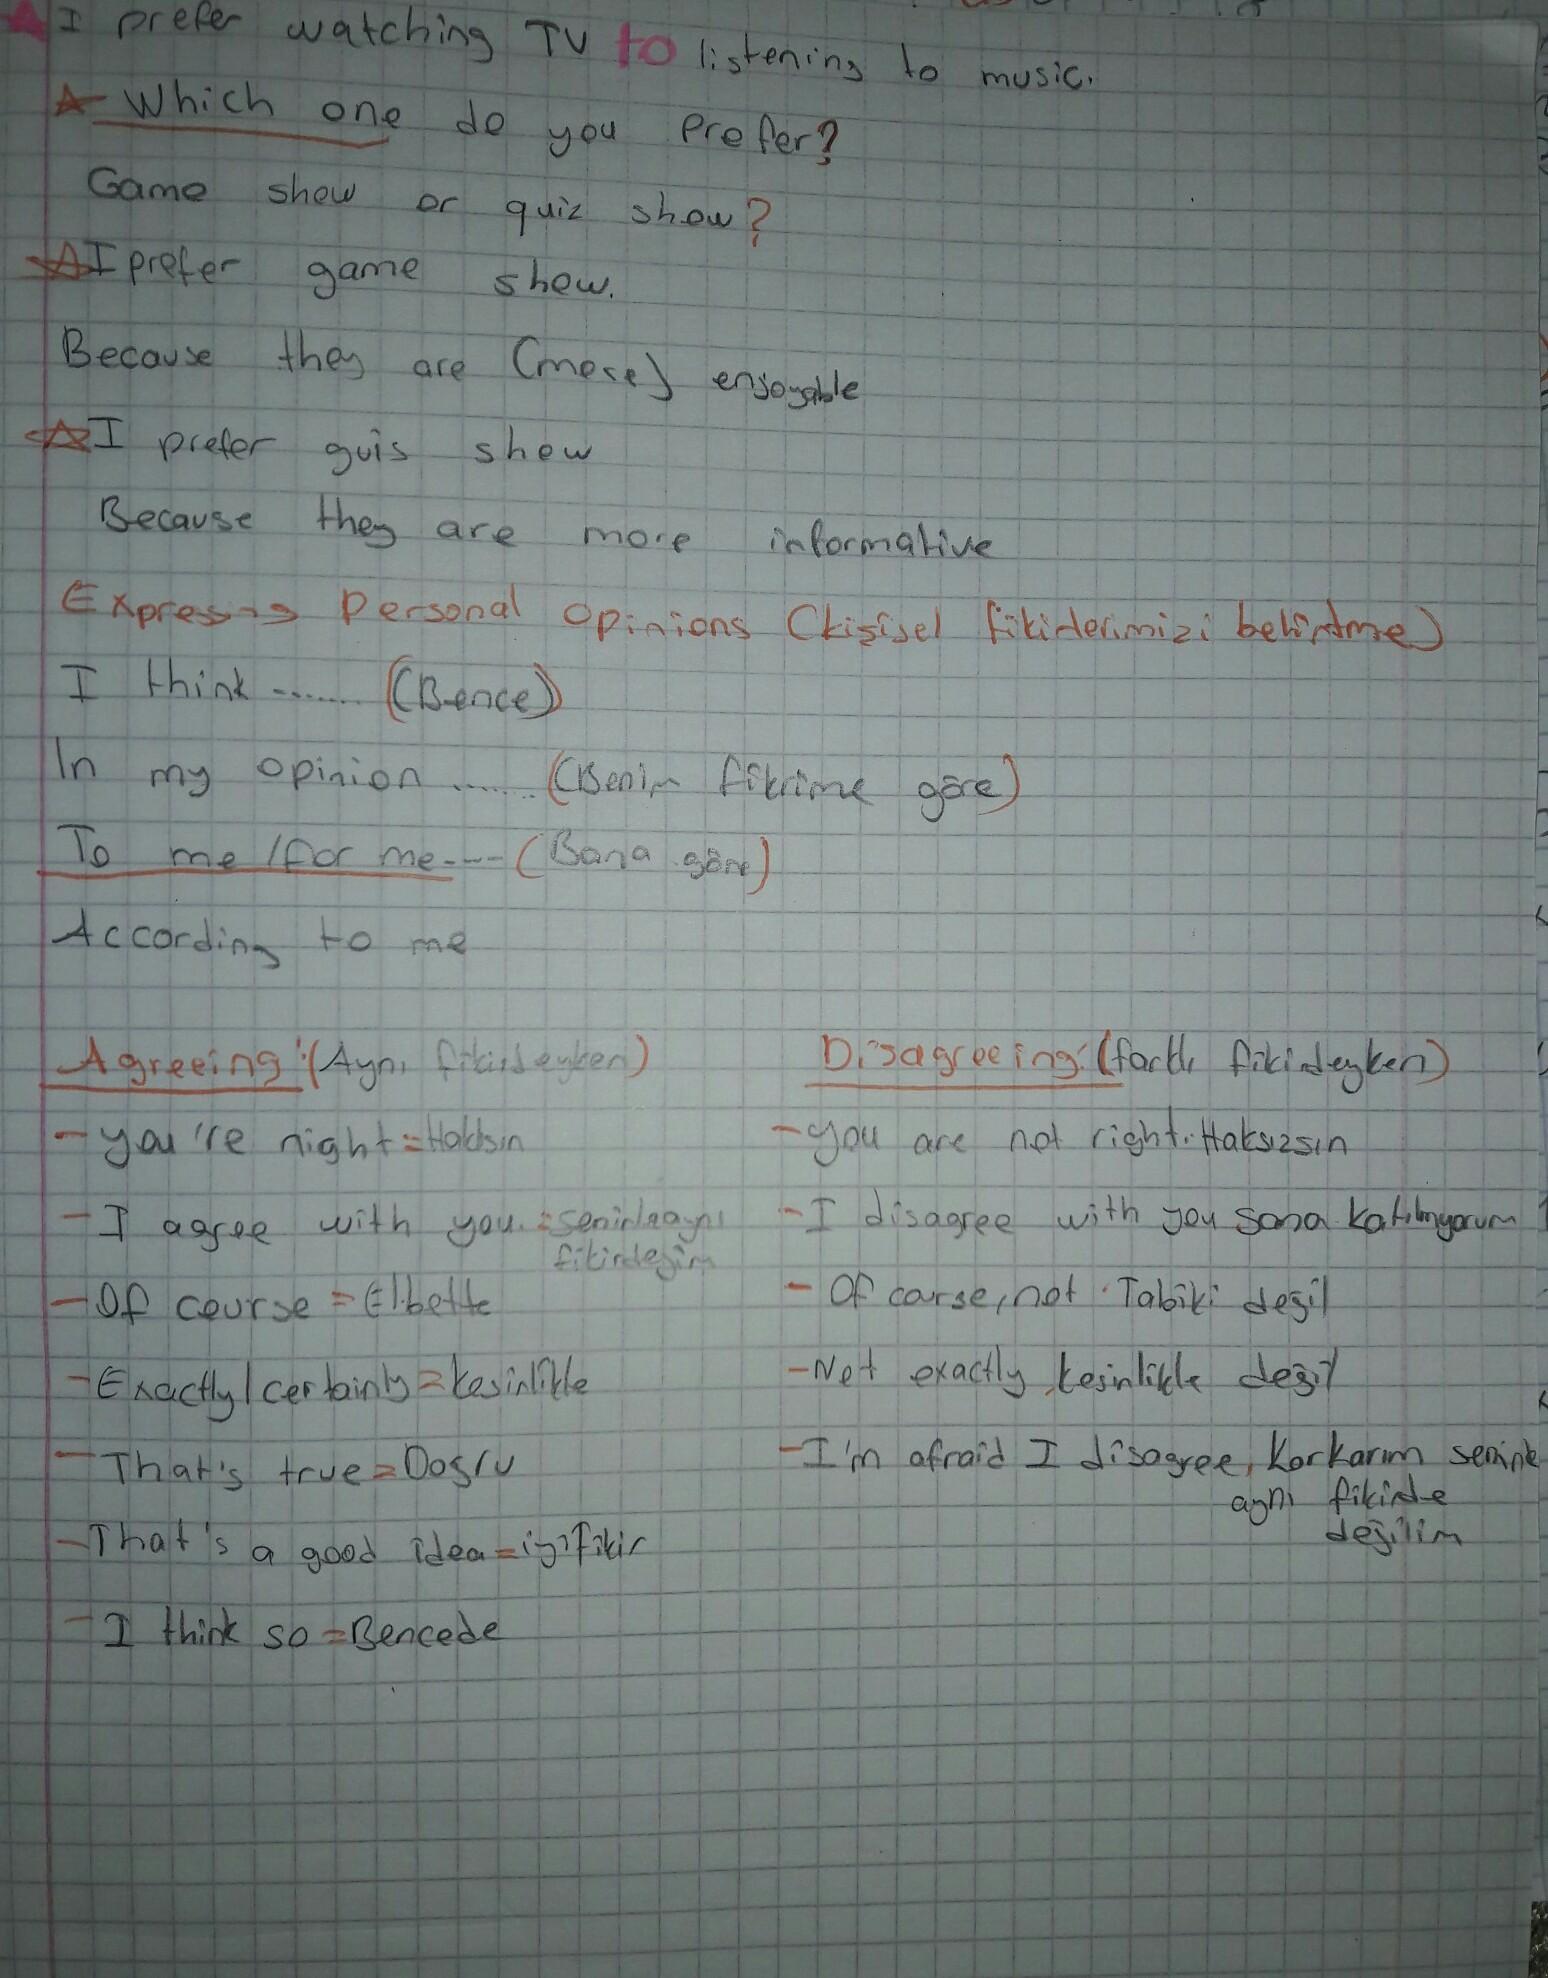 I prefer watching TV to listening to music.
Which one do you prefer?
Game show or quiz show?
I prefer game show.
Because they are (more) enjoyable
I prefer guis show
Because they are more informative
Expressing Personal Opinions (kişisel fikirlerimizi belirtme)
I think ....... (Bence)
In my opinion ....... (Benim fikrime göre)
To me / for me---- (Bana göre)
According to me
Agreeing: (Aynı fikirdeyken)
- you're right = Haklısın
- I agree with you. = seninle aynı
fikirdeyim
- Of course = Elbette
- Exactly / certainly = kesinlikle
- That's true = Doğru
- That's a good idea = iyi fikir
- I think so = Bencede
Disagreeing: (farklı fikirdeyken)
- you are not right. Haksızsın
- I disagree with you sana katılmıyorum
- Of course, not. Tabiki değil
- Not exactly, kesinlikle değil
- I'm afraid I disagree, korkarım seninle
aynı fikirde
değilim